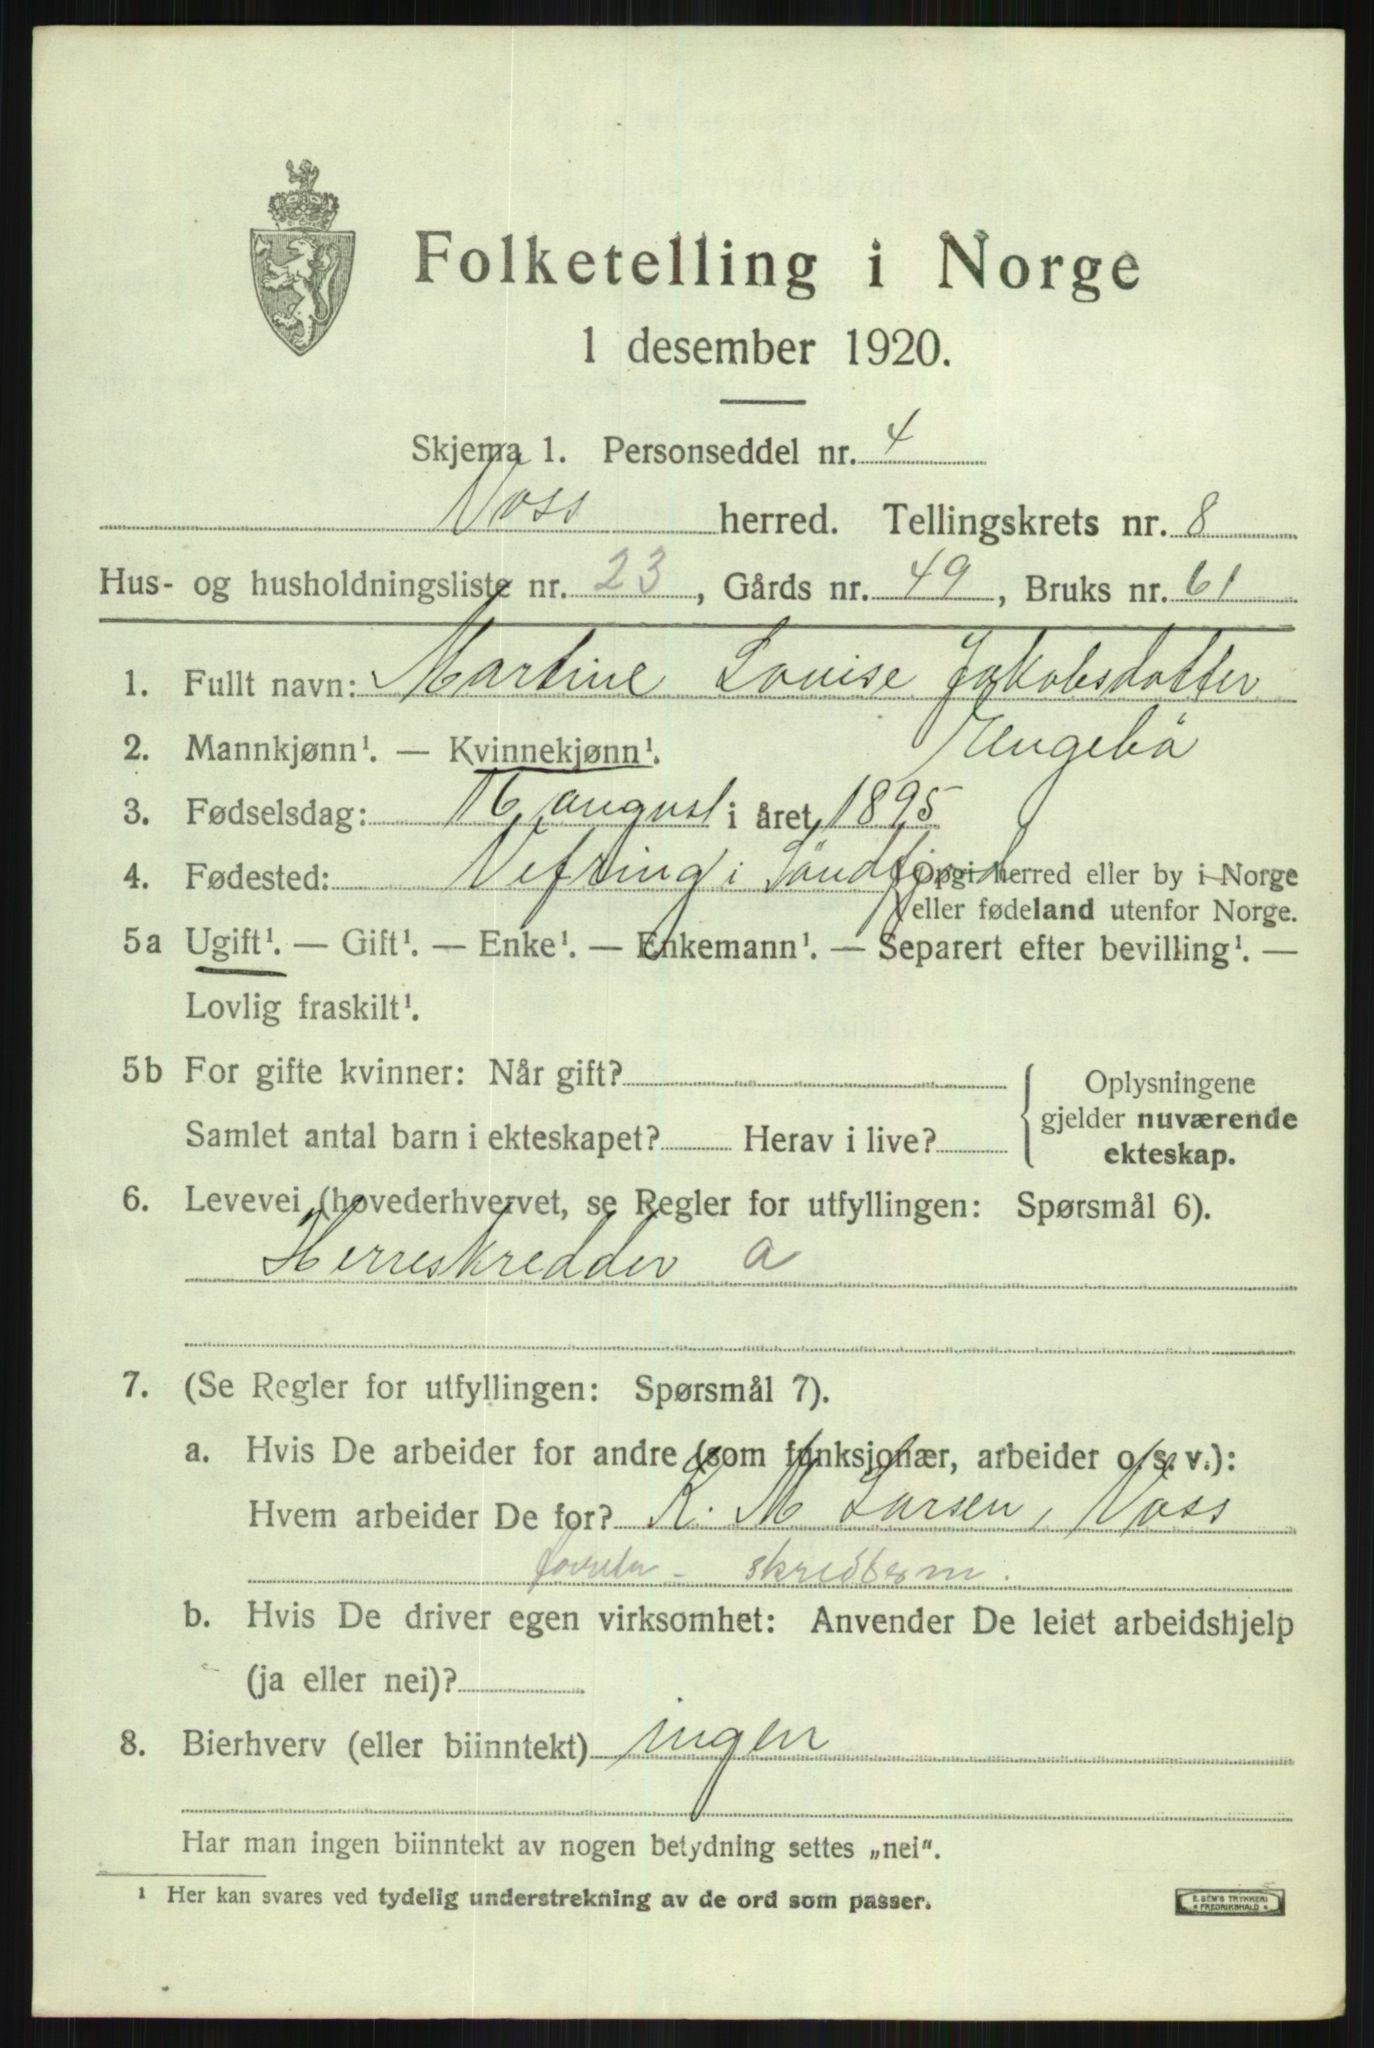 Folketelling i Norge
1 desember 1920.
Skjema 1. Personseddel nr. 4
Voss herred. Tellingskrets nr. 8
Hus- og husholdningsliste nr. 23, Gårds nr. 49, Bruks nr. 61
1. Fullt navn: Martine Louise Jakobsdotter
Engebö
2. Mannkjønn¹. — Kvinnekjønn¹.
3. Fødselsdag: 16 august i året 1895
4. Fødested: Vefring i Söndfjord Opgi herred eller by i Norge
eller fødeland utenfor Norge.
5a Ugift¹. — Gift¹. — Enke¹. — Enkemann¹. — Separert efter bevilling¹. —
Lovlig fraskilt¹.
5b For gifte kvinner: Når gift?
Samlet antal barn i ekteskapet? Herav i live?
Oplysningene
gjelder nuværende
ekteskap.
6. Levevei (hovederhvervet, se Regler for utfyllingen: Spørsmål 6).
Herreskredder a
7. (Se Regler for utfyllingen: Spørsmål 7).
a. Hvis De arbeider for andre (som funksjonær, arbeider o. s. v.):
Hvem arbeider De for? K. M Larsen, Voss
skredderm.
b. Hvis De driver egen virksomhet: Anvender De leiet arbeidshjelp
(ja eller nei)?
8. Bierhverv (eller biinntekt) ingen
Har man ingen biinntekt av nogen betydning settes „nei“.
¹ Her kan svares ved tydelig understrekning av de ord som passer.
E. SEM'S TRYKKERI
FREDRIKSHALD